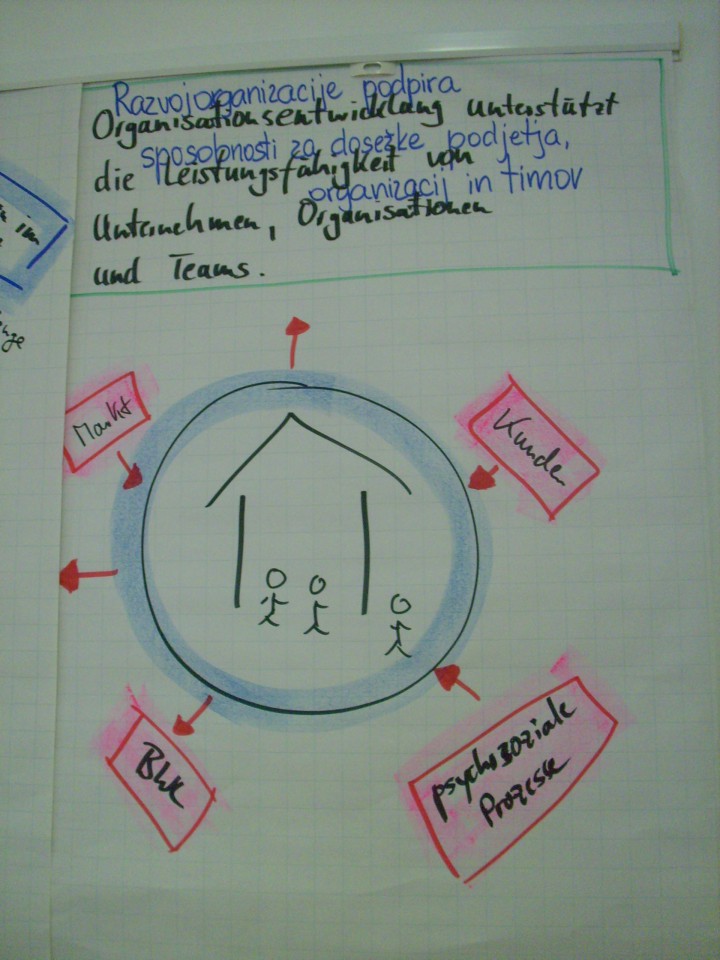 Razvojorganizacije podpira
Organisationsentwicklung unterstützt
sposobnosti za dosežke podjetja,
die Leistungsfähigkeit von
organizacij in timov
Unternehmen, Organisationen
und Teams.
Markt
Kunden
psychosoziale
Prozesse